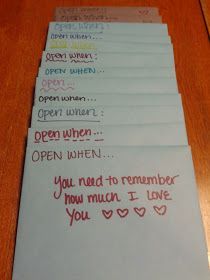 open when:
open when...
open when:
OPEN WHEN...
open...
open when...
open when:
open when...
OPEN WHEN...
You need to remember
how much I LOVE
You ♡ ♡ ♡ ♡